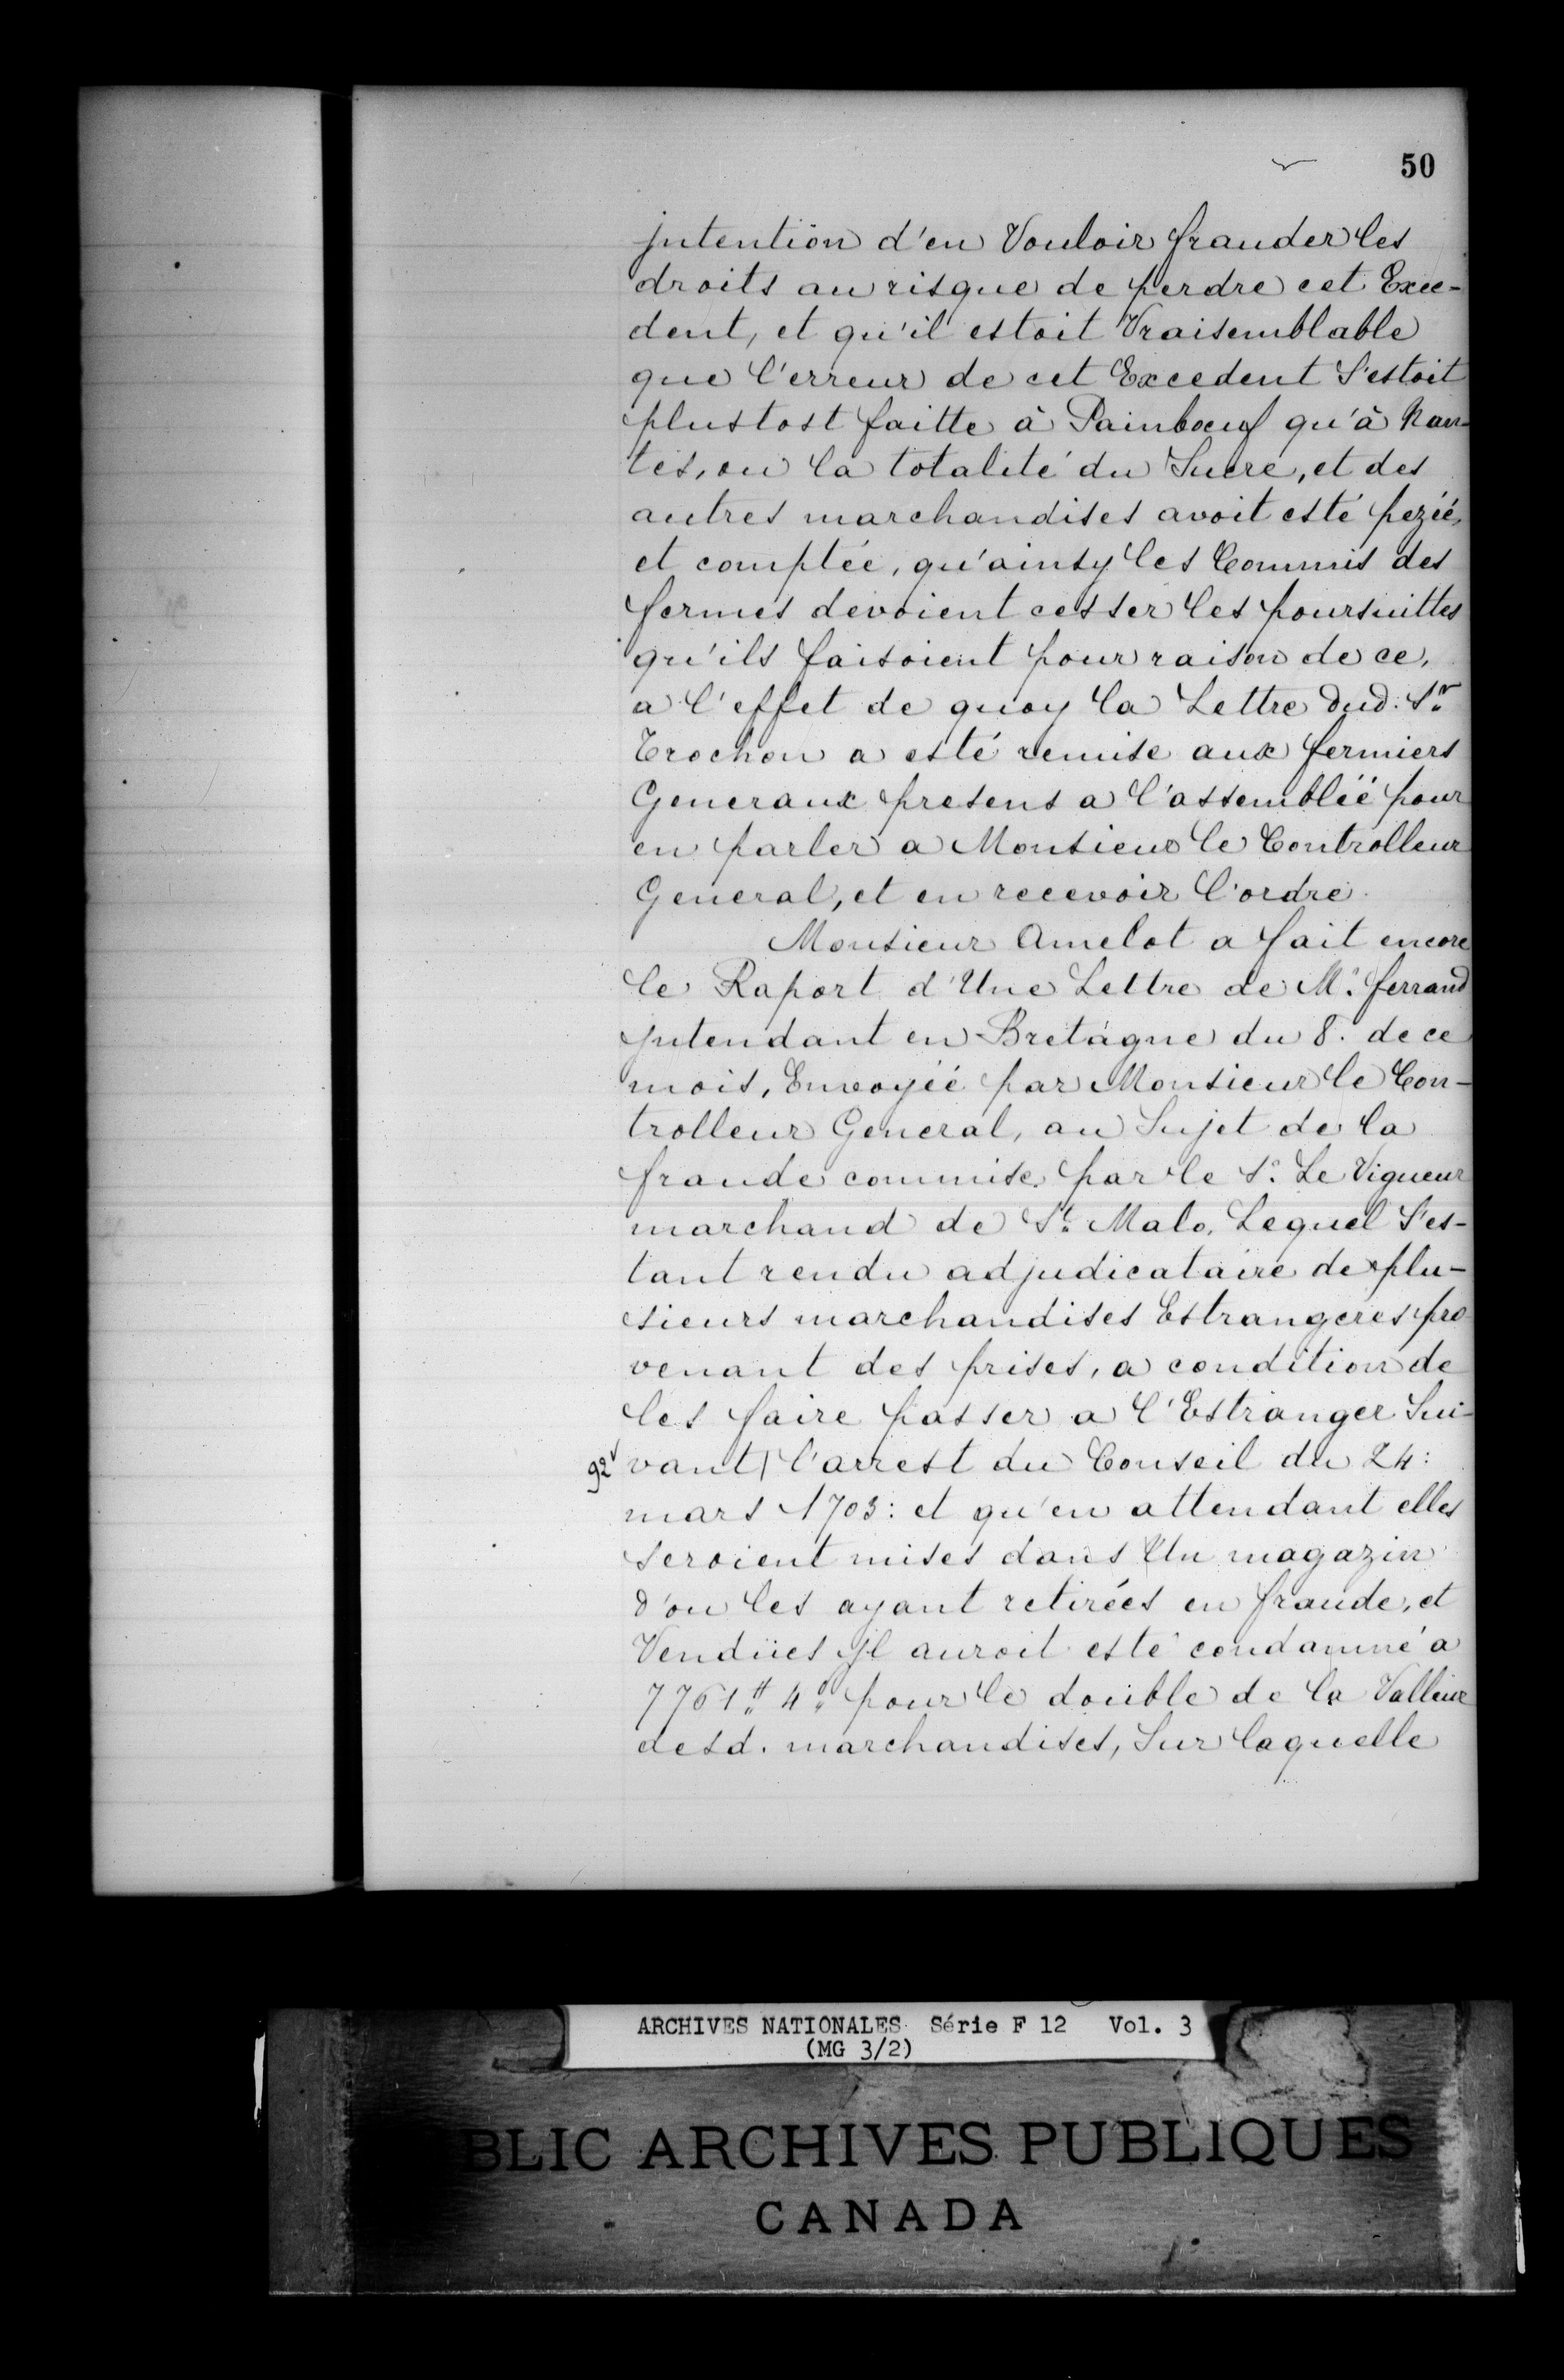 50
jntention d'en Vouloir frauder les
droits au risque de perdre cet Exce-
dent, et qu'il estoit Vraisemblable
que l'erreur de cet Excedent S'estoit
plustost faitte à Painboeuf qu'à Nan-
tes, ou la totalité du Sucre, et des
autres marchandises avoit esté pezéé,
et comptée, qu'ainsy les Commis des
fermes devoient cesser les poursuittes
qu'ils faisoient pour raison de ce,
a l'effet de quoy la Lettre dud. Sr.
Trochon a esté remise aux fermiers
Generaux presens a l'assembléé pour
en parler a Monsieur le Controlleur
General, et en recevoir l'ordre.
Monsieur Amelot a fait encore
le Raport d'Une Lettre de Mr. ferrand
jntendant en Bretagne du 8. de ce
mois, Envoyéé par Monsieur le Con-
trolleur General, au Sujet de la
fraude commise par le Sr. Le Vigueur
marchand de St. Malo, Lequel S'es-
tant rendu adjudicataire de plu-
sieurs marchandises Estrangeres pro
venant des prises, a condition de
les faire passer a l'Estranger Sui-
92v vant | l'arrest du Conseil du 24:
mars 1703: et qu'en attendant elles
seroient mises dans Un magazin
d'ou les ayant retirées en fraude, et
Vendües jl auroit esté condamné a
7761tt 4s pour le double de la Valleur
desd. marchandises, Sur laquelle
ARCHIVES NATIONALES Série F 12 Vol. 3
(MG 3/2)
BLIC ARCHIVES PUBLIQUES
CANADA